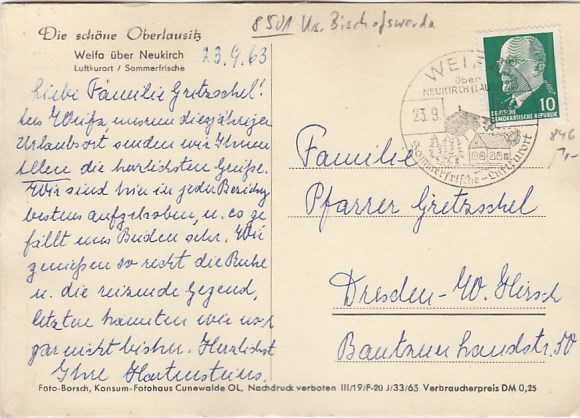 8501 Kr. Bischofswerda
Die schöne Oberlausitz
Weifa über Neukirch
Luftkurort / Sommerfrische
23.9.63
Liebe Familie Gretzschel!
Aus Weifa, unserm diesjährigen
Urlaubsort senden wir Ihnen
allen die herzlichsten Grüße.
Wir sind hier in jeder Beziehung
bestens aufgehoben, u. es ge
fällt uns Beiden sehr. Wir
genießen so recht die Ruhe
u. die reizende Gegend,
letztere kannten wir noch
gar nicht bisher. Herzlichst
Ihre Hartensteins.
WEIFA
über
NEUKIRCH (LAU
23.9.
Sommerfrische-Luftkurort
DEUTSCHE
DEMOKRATISCHE REPUBLIK
10
846
1,-
Familie
Pfarrer Gretzschel
Dresden-W. Hirsch
Bautzner Landstr. 50
Foto-Borsch, Konsum-Fotohaus Cunewalde OL, Nachdruck verboten III/19/F-20 J/33/63 Verbraucherpreis DM 0,25